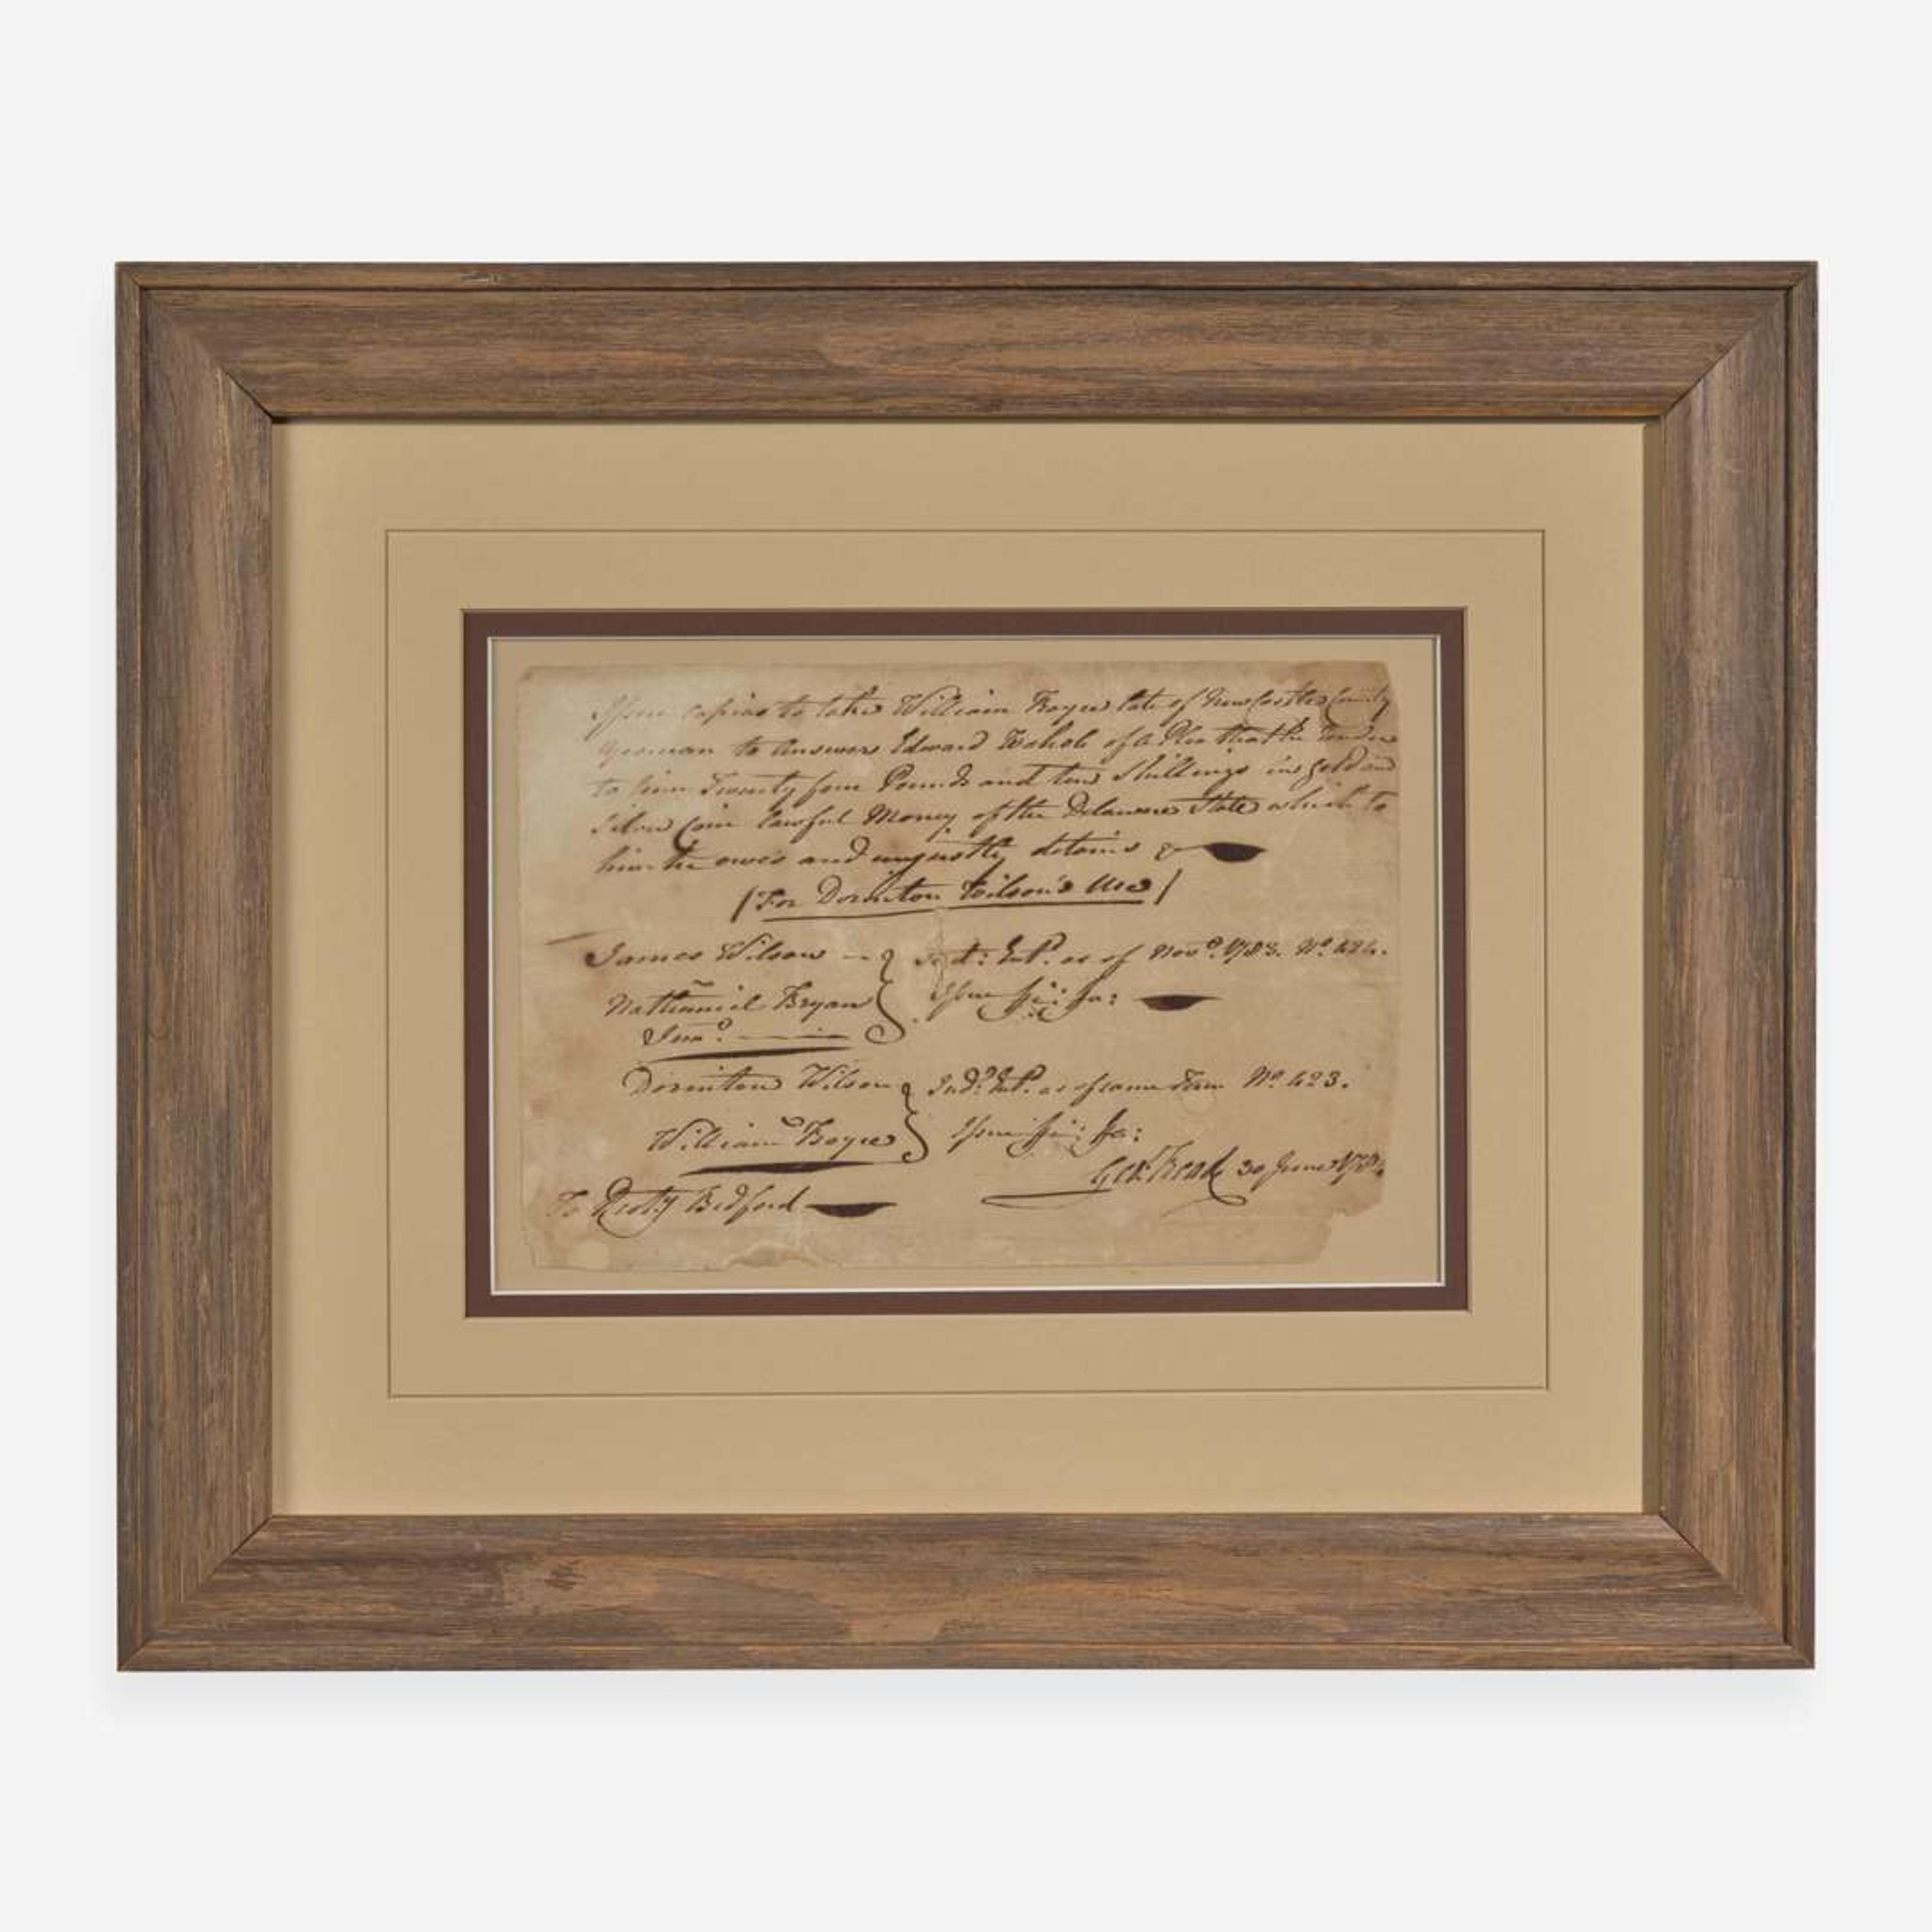 Issue capias to take William Boyce late of New Castle County
Yeoman to Answer Edward of a Plea that he render
to him Twenty four Pounds and ten Shillings in gold and
Silver Coin lawful Money of the Delaware State which to
him he owes and unjustly detains &
/For Dorinton Wilson's Use/
James Wilson — } Judt: Ent.d as of Novr. 1783. No. 424.
Nathaniel Bryan } Issue fi: fa:
Junr. —
Dorinton Wilson } Jud.t Ent.d as of same Term No. 423.
William Boyce } Issue fi: fa:
Geo: Read 30 June 1784
To Bedford